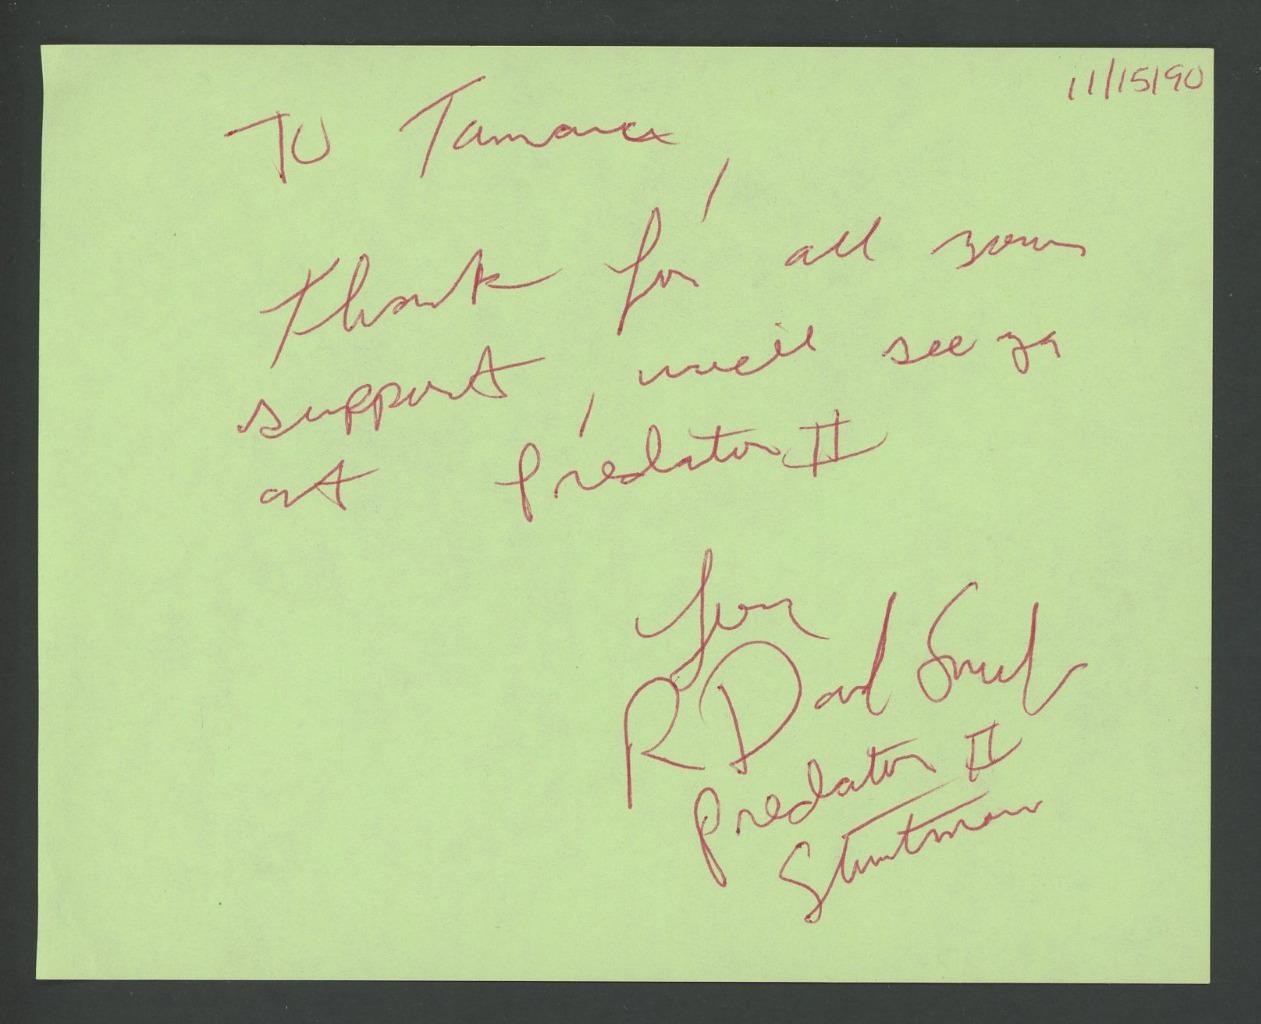 11/15/90
To Tamara,
Thank for all your
support, we'll see ya
at Predator II
R David Smith
Predator II
Stuntman